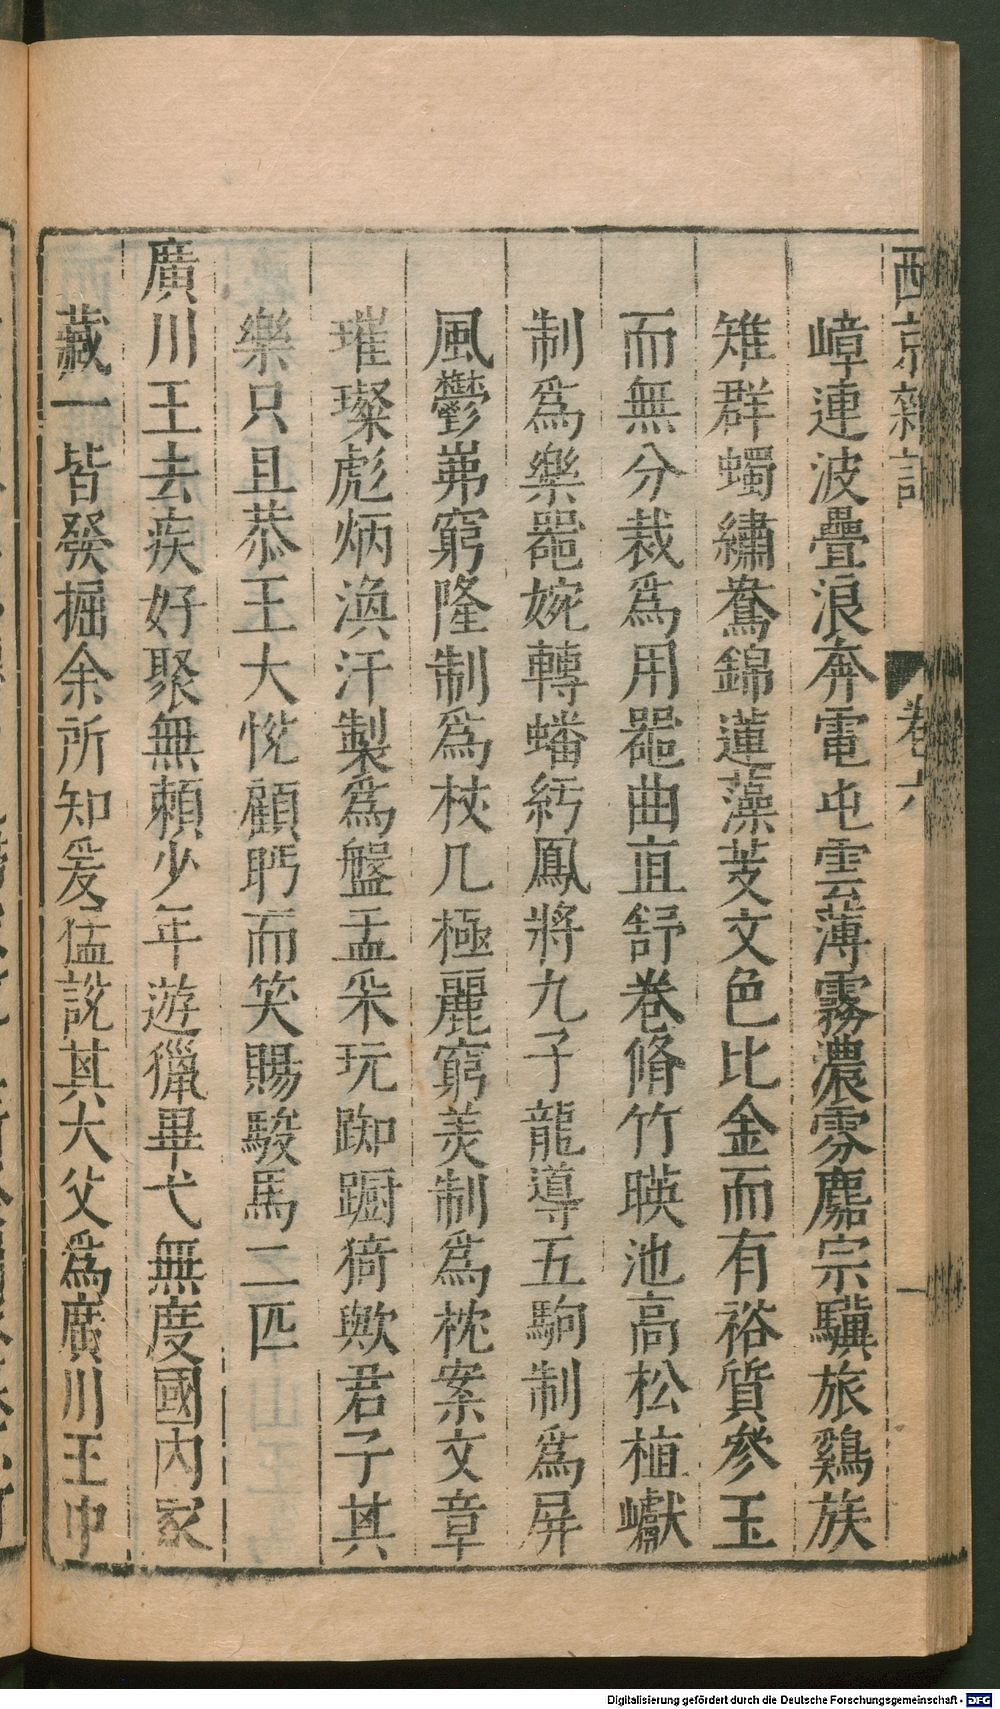 西京雜記 卷六 一
嶂連波疊浪奔電屯雲薄霧濃雰麚宗驥旅鷄族
雉群蠋繡鴦錦蓮藻芰文色比金而有裕質參玉
而無分裁爲用噐曲直舒卷脩竹暎池高松植巘
制爲樂噐婉轉蟠紆鳳將九子龍導五駒制爲屏
風鬱岪窮隆制爲杖几極麗窮美制爲枕案文章
璀璨彪炳渙汗製爲盤盂采玩踟蹰猗歟君子其
樂只且恭王大恱顧眄而笑賜駿馬二匹
廣川王去疾好聚無頼少年遊獵畢弋無度國內冢
藏一皆發掘余所知爰猛說其大父爲廣川王中
Digitalisierung gefördert durch die Deutsche Forschungsgemeinschaft - DFG